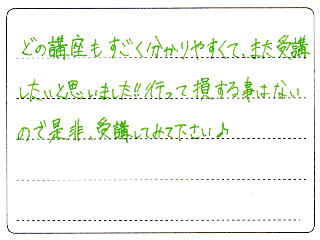 どの講座もすごく分かりやすくて、また受講
したいと思いました!!行って損する事はない
ので是非、受講してみて下さい♪